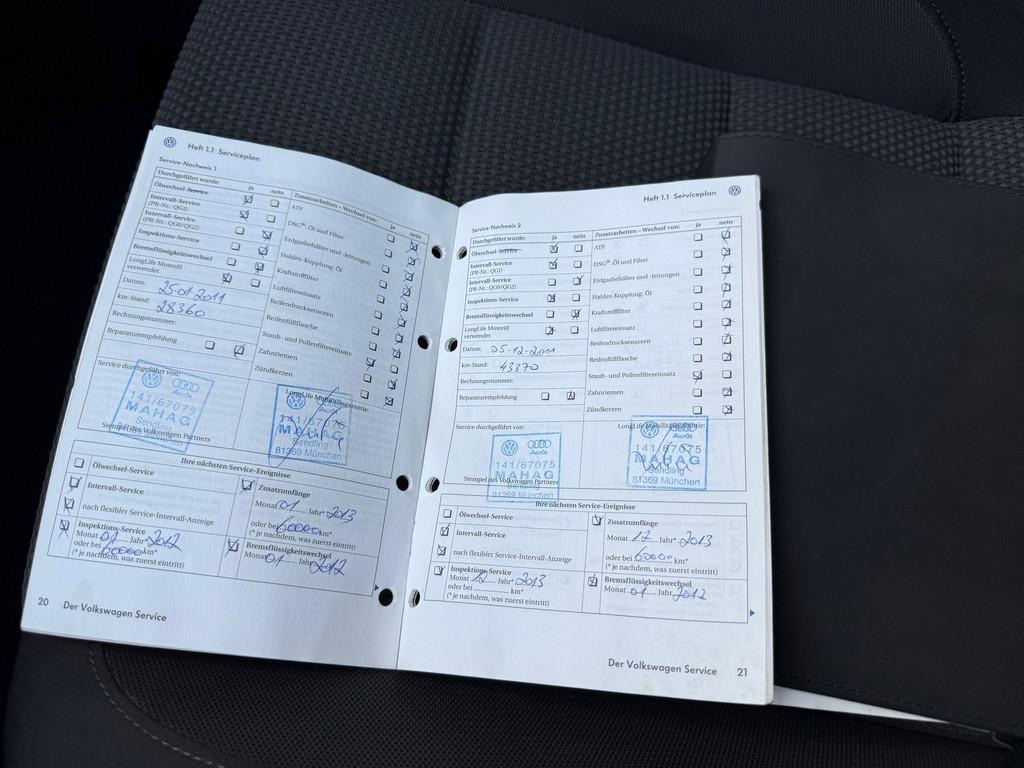 Heft 1.1 Serviceplan
Service-Nachweis 1
Durchgeführt wurde: ja nein
Ölwechsel-Service
Intervall-Service
(PR-Nr.: QG1)
Intervall-Service
(PR-Nr.: QG0/QG2)
Inspektions-Service
Bremsflüssigkeitswechsel
LongLife Motoröl
verwendet
Datum: 25.01.2011
km-Stand: 28360
Rechnungsnummer:
Reparaturempfehlung
Zusatzarbeiten – Wechsel von: ja nein
ATF
DSG®: Öl und Filter
Erdgasbehälter und -leitungen
Haldex-Kupplung: Öl
Kraftstofffilter
Luftfiltereinsatz
Reifendrucksensoren
Reifenfüllflasche
Staub- und Pollenfiltereinsatz
Zahnriemen
Zündkerzen
Service durchgeführt von:
Audi
141/67075
MAHAG
Sendling
81369 München
Stempel des Volkswagen Partners
LongLife Mobilitätsgarantie:
Audi
141/67075
MAHAG
Sendling
81369 München
Ihre nächsten Service-Ereignisse
Ölwechsel-Service
Intervall-Service
nach flexibler Service-Intervall-Anzeige
Inspektions-Service
Monat 01 Jahr* 2012
oder bei 60000 km*
(* je nachdem, was zuerst eintritt)
Zusatzumfänge
Monat 01 Jahr* 2013
oder bei 60000 km*
(* je nachdem, was zuerst eintritt)
Bremsflüssigkeitswechsel
Monat 01 Jahr 2012
20 Der Volkswagen Service
Heft 1.1 Serviceplan
Service-Nachweis 2
Durchgeführt wurde: ja nein
Ölwechsel-Service
Intervall-Service
(PR-Nr.: QG1)
Intervall-Service
(PR-Nr.: QG0/QG2)
Inspektions-Service
Bremsflüssigkeitswechsel
LongLife Motoröl
verwendet
Datum: 05-12-2011
km-Stand: 43370
Rechnungsnummer:
Reparaturempfehlung
Zusatzarbeiten – Wechsel von: ja nein
ATF
DSG®: Öl und Filter
Erdgasbehälter und -leitungen
Haldex-Kupplung: Öl
Kraftstofffilter
Luftfiltereinsatz
Reifendrucksensoren
Reifenfüllflasche
Staub- und Pollenfiltereinsatz
Zahnriemen
Zündkerzen
Service durchgeführt von:
Audi
141/67075
MAHAG
Sendling
81369 München
Stempel des Volkswagen Partners
LongLife Mobilitätsgarantie:
Audi
141/67075
MAHAG
Sendling
81369 München
Ihre nächsten Service-Ereignisse
Ölwechsel-Service
Intervall-Service
nach flexibler Service-Intervall-Anzeige
Inspektions-Service
Monat 12 Jahr* 2013
oder bei km*
(* je nachdem, was zuerst eintritt)
Zusatzumfänge
Monat 12 Jahr* 2013
oder bei 60000 km*
(* je nachdem, was zuerst eintritt)
Bremsflüssigkeitswechsel
Monat 01 Jahr 2012
Der Volkswagen Service 21